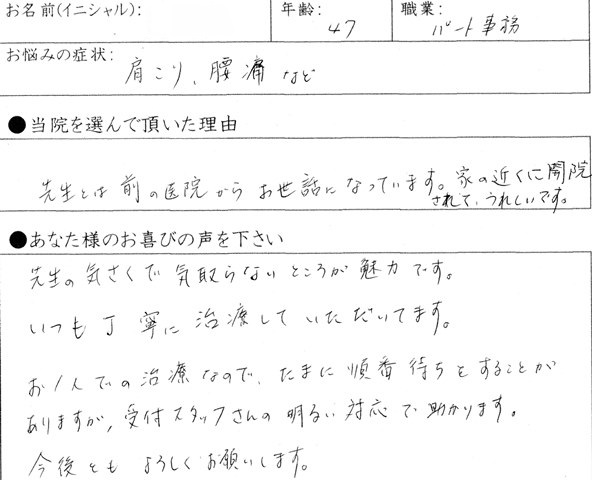 お名前(イニシャル):
年齢:
47
職業:
パート事務
お悩みの症状:
肩こり、腰痛 など
●当院を選んで頂いた理由
先生とは前の医院からお世話になっています。家の近くに開院
されて、うれしいです。
●あなた様のお喜びの声を下さい
先生の気さくで気取らないところが魅力です。
いつも丁寧に治療していただいてます。
お1人での治療なので、たまに順番待ちをすることが
ありますが、受付スタッフさんの明るい対応で助かります。
今後とも よろしくお願いします。